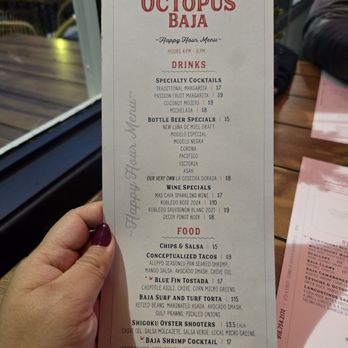 OCTOPUS
BAJA
Happy Hour Menu
HOURS 4 PM - 6 PM
DRINKS
SPECIALTY COCKTAILS
TRADITIONAL MARGARITA | 17
PASSION FRUIT MARGARITA | 19
COCONUT MOJITO | 19
MICHELADA | 18
BOTTLE BEER SPECIALS | 15
NEW LUNA DE MIEL DRAFT
MODELO ESPECIAL
MODELO NEGRA
CORONA
PACIFICO
VICTORIA
ASAHI
OUR VERY OWN LA COSECHA DORADA | 18
WINE SPECIALS
MAS CHIA SPARKLING WINE | 17
ROBLEDO ROSE 2024 | 19
ROBLEDO SAUVIGNON BLANC 2021 | 19
DECOY PINOT NOIR | 18
FOOD
CHIPS & SALSA | 15
CONCEPTUALIZED TACOS | 19
ALEPPO SEASONED PAN SEARED SHRIMP,
MANGO SALSA, AVOCADO SMASH, CHIVE OIL
BLUE FIN TOSTADA | 17
CHIPOTLE AIOLI, CHIVE, CORN MICRO GREENS
BAJA SURF AND TURF TORTA | 115
REFRIED BEANS, MARINATED ASADA, AVOCADO SMASH,
GULF PRAWNS, PICKLED ONIONS
SHIGOKU OYSTER SHOOTERS | 13.5 EACH
CHIVE OIL, SALSA MOLCAJETE, SALSA VERDE, LOCAL MICRO GREENS
BAJA SHRIMP COCKTAIL | 17
Happy Hour Menu